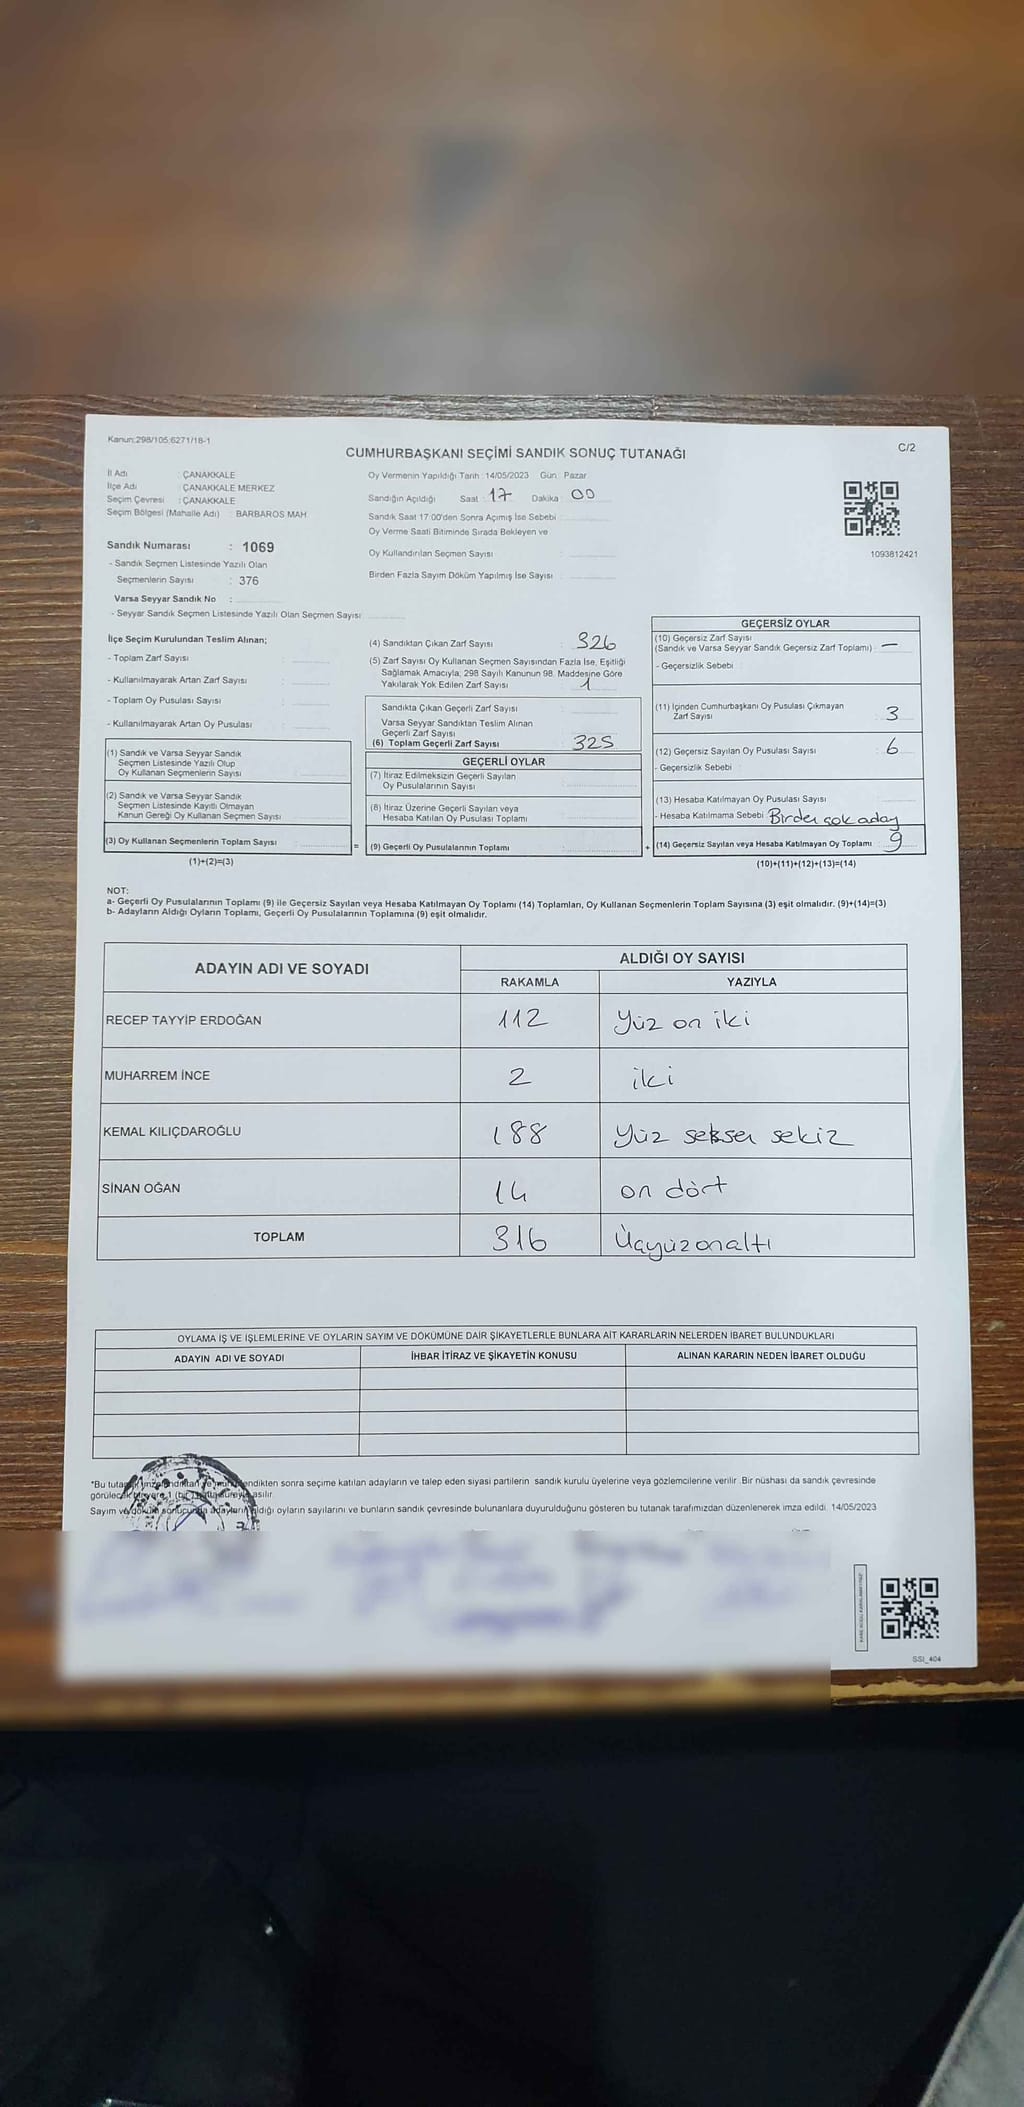 Kanun:298/105;6271/18-1
C/2
CUMHURBAŞKANI SEÇİMİ SANDIK SONUÇ TUTANAĞI
İl Adı : ÇANAKKALE
İlçe Adı : ÇANAKKALE MERKEZ
Seçim Çevresi : ÇANAKKALE
Seçim Bölgesi (Mahalle Adı) : BARBAROS MAH
Sandık Numarası : 1069
- Sandık Seçmen Listesinde Yazılı Olan
Seçmenlerin Sayısı : 376
Varsa Seyyar Sandık No :
- Seyyar Sandık Seçmen Listesinde Yazılı Olan Seçmen Sayısı
Oy Vermenin Yapıldığı Tarih : 14/05/2023 Gün : Pazar
Sandığın Açıldığı Saat : 17 Dakika : 00
Sandık Saat 17:00'den Sonra Açımış İse Sebebi :
Oy Verme Saati Bitiminde Sırada Bekleyen ve
Oy Kullandırılan Seçmen Sayısı :
Birden Fazla Sayım Döküm Yapılmış İse Sayısı :
1093812421
İlçe Seçim Kurulundan Teslim Alınan;
- Toplam Zarf Sayısı :
- Kullanılmayarak Artan Zarf Sayısı :
- Toplam Oy Pusulası Sayısı :
- Kullanılmayarak Artan Oy Pusulası :
(1) Sandık ve Varsa Seyyar Sandık
Seçmen Listesinde Yazılı Olup
Oy Kullanan Seçmenlerin Sayısı :
(2) Sandık ve Varsa Seyyar Sandık
Seçmen Listesinde Kayıtlı Olmayan
Kanun Gereği Oy Kullanan Seçmen Sayısı :
(3) Oy Kullanan Seçmenlerin Toplam Sayısı : =
(1)+(2)=(3)
(4) Sandıktan Çıkan Zarf Sayısı : 326
(5) Zarf Sayısı Oy Kullanan Seçmen Sayısından Fazla İse, Eşitliği
Sağlamak Amacıyla, 298 Sayılı Kanunun 98. Maddesine Göre
Yakılarak Yok Edilen Zarf Sayısı : 1
Sandıkta Çıkan Geçerli Zarf Sayısı :
Varsa Seyyar Sandıktan Teslim Alınan
Geçerli Zarf Sayısı :
(6) Toplam Geçerli Zarf Sayısı : 325
GEÇERLİ OYLAR
(7) İtiraz Edilmeksizin Geçerli Sayılan
Oy Pusulalarının Sayısı :
(8) İtiraz Üzerine Geçerli Sayılan veya
Hesaba Katılan Oy Pusulası Toplamı :
(9) Geçerli Oy Pusulalarının Toplamı : +
GEÇERSİZ OYLAR
(10) Geçersiz Zarf Sayısı
(Sandık ve Varsa Seyyar Sandık Geçersiz Zarf Toplamı) : —
- Geçersizlik Sebebi :
(11) İçinden Cumhurbaşkanı Oy Pusulası Çıkmayan
Zarf Sayısı : 3
(12) Geçersiz Sayılan Oy Pusulası Sayısı : 6
- Geçersizlik Sebebi :
(13) Hesaba Katılmayan Oy Pusulası Sayısı :
- Hesaba Katılmama Sebebi : Birden çok aday
(14) Geçersiz Sayılan veya Hesaba Katılmayan Oy Toplamı : 9
(10)+(11)+(12)+(13)=(14)
NOT:
a- Geçerli Oy Pusulalarının Toplamı (9) ile Geçersiz Sayılan veya Hesaba Katılmayan Oy Toplamı (14) Toplamları, Oy Kullanan Seçmenlerin Toplam Sayısına (3) eşit olmalıdır. (9)+(14)=(3)
b- Adayların Aldığı Oyların Toplamı, Geçerli Oy Pusulalarının Toplamına (9) eşit olmalıdır.
ADAYIN ADI VE SOYADI ALDIĞI OY SAYISI
RAKAMLA YAZIYLA
RECEP TAYYİP ERDOĞAN 112 Yüz on iki
MUHARREM İNCE 2 iki
KEMAL KILIÇDAROĞLU 188 Yüz seksen sekiz
SİNAN OĞAN 14 on dört
TOPLAM 316 Üçyüzonaltı
OYLAMA İŞ VE İŞLEMLERİNE VE OYLARIN SAYIM VE DÖKÜMÜNE DAİR ŞİKAYETLERLE BUNLARA AİT KARARLARIN NELERDEN İBARET BULUNDUKLARI
ADAYIN ADI VE SOYADI İHBAR İTİRAZ VE ŞİKAYETİN KONUSU ALINAN KARARIN NEDEN İBARET OLDUĞU
*Bu sonra seçime katılan adayların ve talep eden siyasi partilerin sandık kurulu üyelerine veya gözlemcilerine verilir. Bir nüshası da sandık çevresinde
görülecek asılır.
Sayım ve aldığı oyların sayılarını ve bunların sandık çevresinde bulunanlara duyurulduğunu gösteren bu tutanak tarafımızdan düzenlenerek imza edildi. 14/05/2023
SSI_404